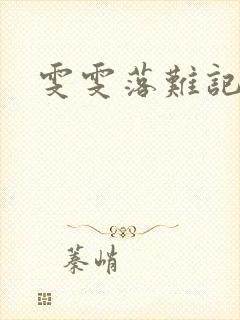 雯雯落難記
蓁峭